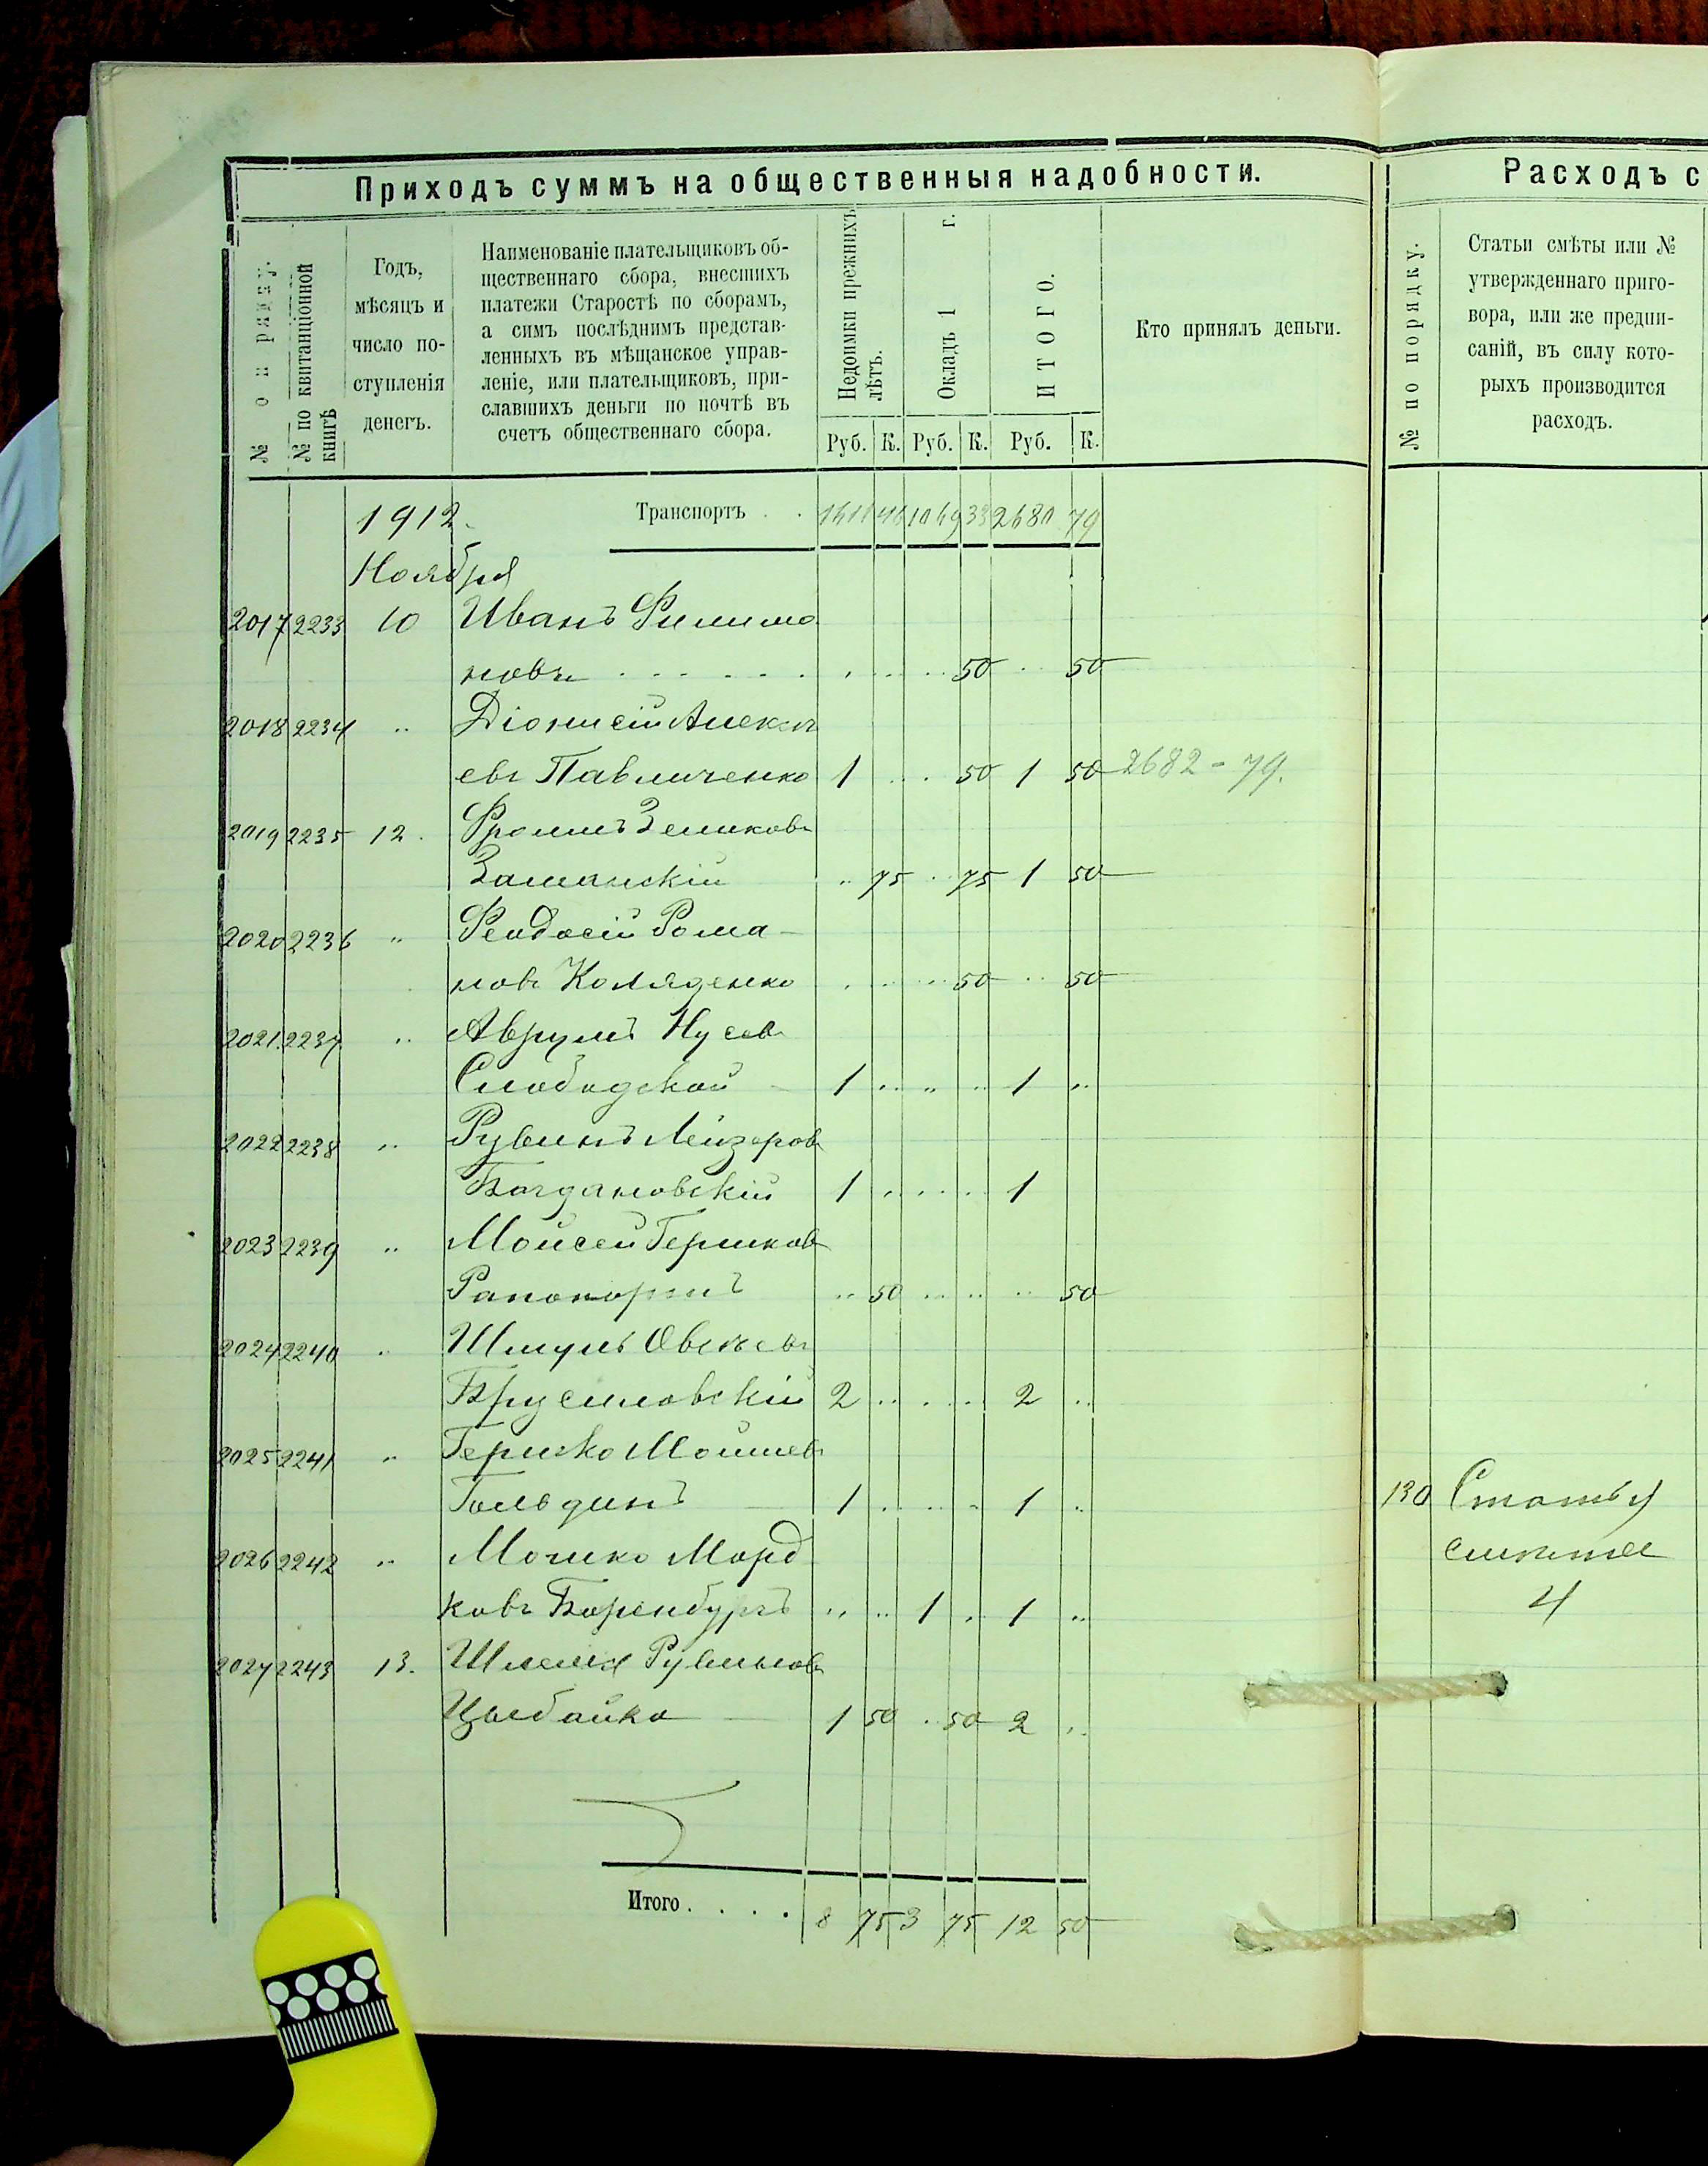 Приходъ суммъ на общественныя надобности.
№ по порядку.
№ по квитанціонной книгѣ
Годъ,
мѣсяцъ и
число по-
ступленія
денегъ.
Наименованіе плательщиковъ об-
щественнаго сбора, внесшихъ
платежи Старостѣ по сборамъ,
а симъ послѣднимъ представ-
ленныхъ въ мѣщанское управ-
леніе, или плательщиковъ, при-
славшихъ деньги по почтѣ въ
счетъ общественнаго сбора.
Недоимки прежнихъ лѣтъ.
Окладъ 1 г.
ИТОГО.
Кто принялъ деньги.
Руб. К. Руб. К. Руб. К.
1912. Транспортъ . . 1611 46 1069 33 2680 79
Ноября
2017 2233 10 Иванъ Филимо
новъ . . . . . . 50 .. 50
2018 2234 .. Діонисій Алексѣ
евъ Павличенко 1 . .. 50 1 50 2682 - 79.
2019 2235 12. Фроимъ Зеликовъ
Заманскій .. 75 .. 75 1 50
2020 2236 .. Феодосій Рома-
новъ Коляденко . . .. 50 .. 50
2021 2237 .. Аврумъ Нусев
Слободской 1 .. .. .. 1 ..
2022 2238 .. Рувинъ Лейзеров
Богдановскій 1 .. .. .. 1
2023 2239 .. Мойсей Гершков
Рапопортъ .. 50 .. .. .. 50
2024 2240 .. Шмуль Овсеевъ
Брусиловскій 2 .. . .. 2 ..
2025 2241 .. Гершко Мошкев
Гольдинъ 1 .. .. .. 1 ..
2026 2242 .. Мошко Морд
ковъ Беренбургъ .. .. 1 . 1 ..
2027 2243 13. Шлема Рувинов
Цыбайко 1 50 . 50 2 ..
Итого. . . . 8 75 3 75 12 50
Расходъ с
№ по порядку.
Статьи смѣты или №
утвержденнаго приго-
вора, или же предпи-
саній, въ силу кото-
рыхъ производится
расходъ.
130 Статья
смѣты
4